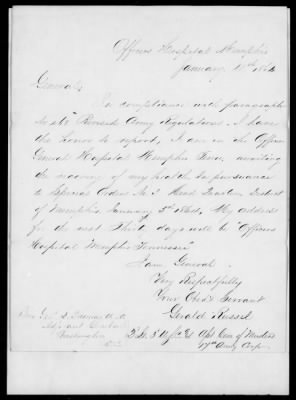 Officers Hospital Memphis
January 12th 1864
General,
In compliance with paragraph
Revised Army Regulations. I have
the honor to report, I am in the Officers
General Hospital Memphis Tenn, awaiting
the recovery of my health in pursuance
to Special Orders No 2 Head Quarters District
of Memphis, January 3d 1864. My address
for the next thirty days will be "Officers
Hospital Memphis Tennessee"
I am General
Very Respectfully
Your Obedt Servant
Gerald Russel
Brig Genl L Thomas
Adjutant General
Washington
D.C.
Com of Musters
17th Army Corps